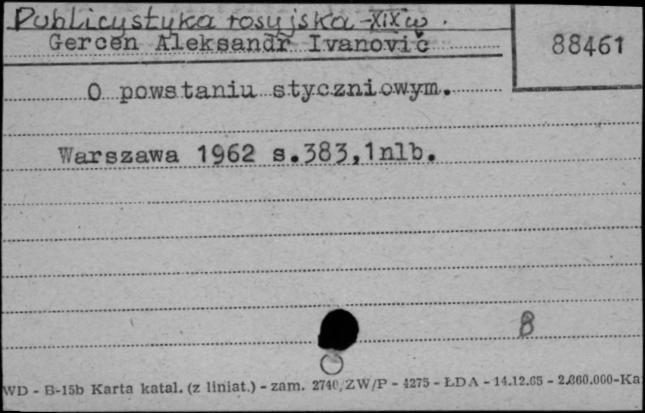 Publicystyka rosyjska - XIX w.
Gercen Aleksandr Ivanovič
88461
O powstaniu styczniowym.
Warszawa 1962 s.383,1nlb.
B
WD - B-15b Karta katal. (z liniat.) - zam. 2740/ZW/P - 4275 - ŁDA - 14.12.65 - 2.860.000-Ka